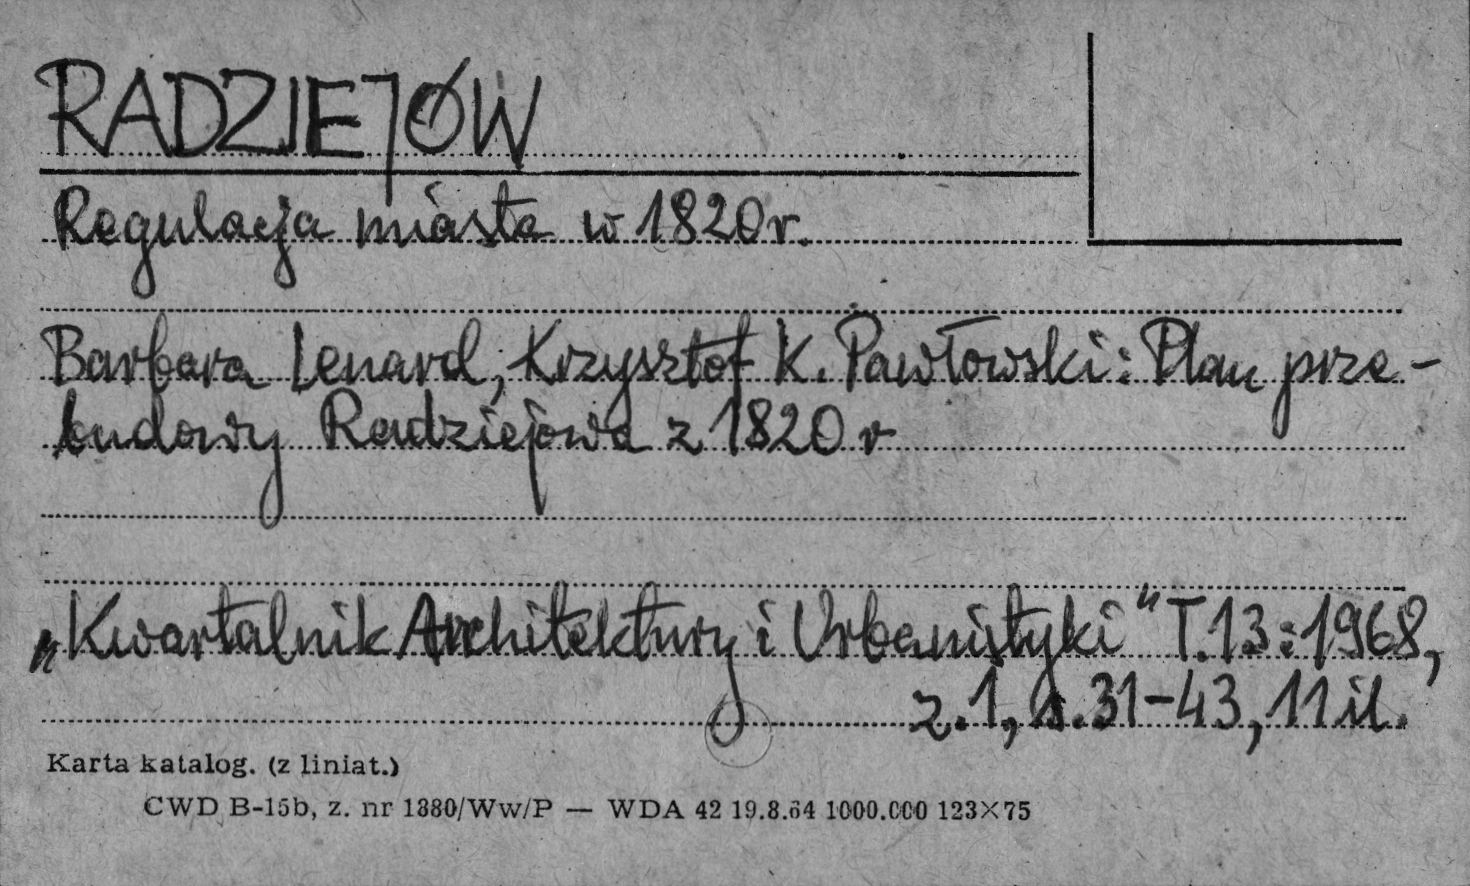 RADZIEJÓW
Regulacja miasta w 1820 r.
Barbara Lenard, Krzysztof K. Pawłowski: Plan prze-
budowy Radziejowa z 1820 r
„Kwartalnik Architektury i Urbanistyki" T.13:1968,
z.1, s.31-43, 11 il.
Karta katalog. (z liniat.)
CWD B-15b, z. nr 1380/Ww/P — WDA 42 19.8.64 1000.000 123×75